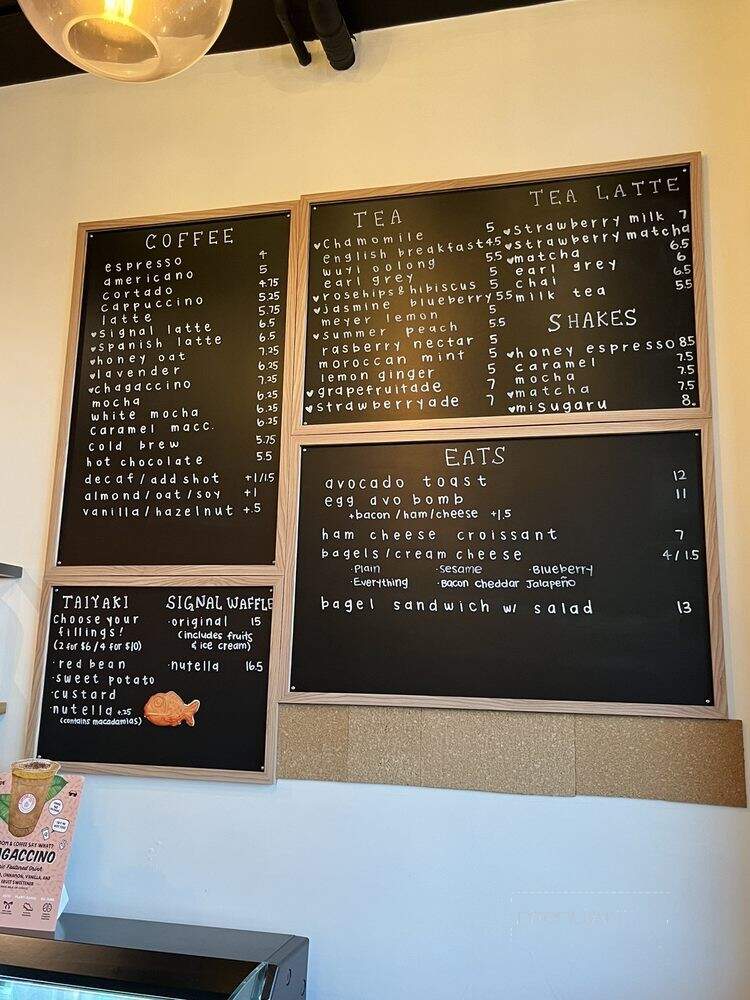 COFFEE
espresso 4
americano 5
cortado 4.75
cappuccino 5.25
latte 5.75
♥signal latte 6.5
♥spanish latte 6.5
♥honey oat 7.25
♥lavender 6.25
♥chagaccino 7.25
mocha 6.25
white mocha 6.25
caramel macc. 6.25
cold brew 5.75
hot chocolate 5.5
decaf/add shot +1/1.5
almond/oat/soy +1
vanilla/hazelnut +.5
TEA
♥chamomile 5
english breakfast 4.5
wuyi oolong 5.5
earl grey 5
♥rosehips&hibiscus 5
♥jasmine blueberry 5.5
meyer lemon 5
♥summer peach 5.5
rasberry nectar 5
moroccan mint 5
lemon ginger 5
♥grapefruitade 7
♥strawberryade 7
TEA LATTE
♥strawberry milk 7
♥strawberry matcha
♥matcha 6.5
earl grey 6
chai 6.5
milk tea 5.5
SHAKES
♥honey espresso 8.5
caramel 7.5
mocha 7.5
♥matcha 7.5
♥misugaru 8.
EATS
avocado toast 12
egg avo bomb 11
+bacon/ham/cheese +1.5
ham cheese croissant 7
bagels/cream cheese 4/1.5
·Plain ·Sesame ·Blueberry
·Everything ·Bacon cheddar Jalapeño
bagel sandwich w/ salad 13
TAIYAKI
choose your
fillings!
(2 for $6/4 for $10)
·red bean
·sweet potato
·custard
·nutella +.25
(contains macadamias)
SIGNAL WAFFLE
·original 15
(includes fruits
& ice cream)
·nutella 16.5
& COFFEE SAY WHAT?
GACCINO
Featured Drink
CINNAMON, VANILLA, AND
FRUIT SWEETENER